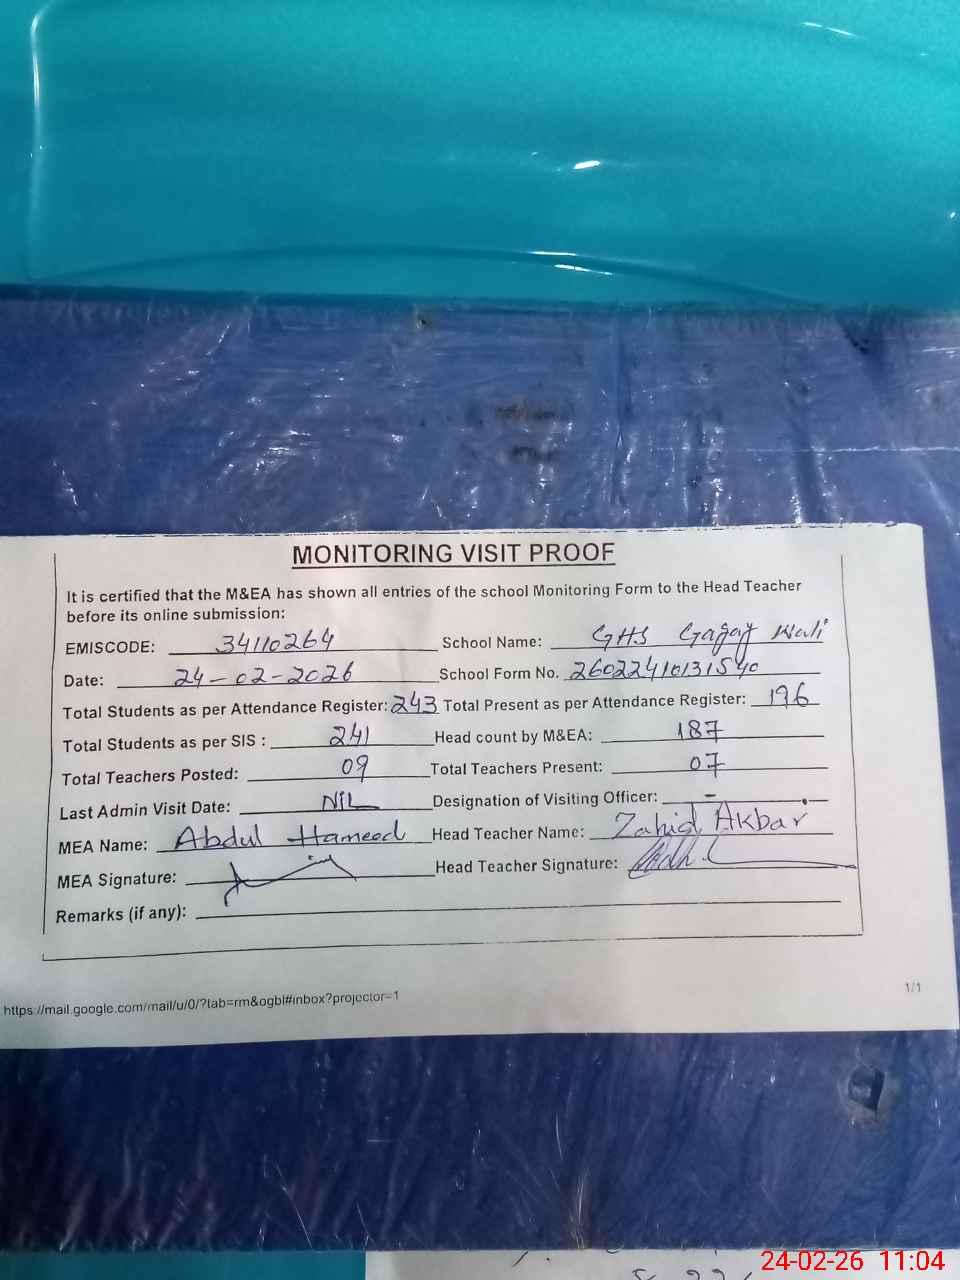 MONITORING VISIT PROOF
It is certified that the M&EA has shown all entries of the school Monitoring Form to the Head Teacher
before its online submission:
EMISCODE: 34110264 School Name: GHS Gagay Wali
Date: 24-02-2026 School Form No. 26022410131540
Total Students as per Attendance Register: 243 Total Present as per Attendance Register: 196
Total Students as per SIS : 241 Head count by M&EA: 187
Total Teachers Posted: 09 Total Teachers Present: 07
Last Admin Visit Date: NIL Designation of Visiting Officer: -
MEA Name: Abdul Hameed Head Teacher Name: Zahid Akbar
MEA Signature: Head Teacher Signature:
Remarks (if any):
https://mail.google.com/mail/u/0/?tab=rm&ogbl#inbox?projector=1 1/1
24-02-26 11:04